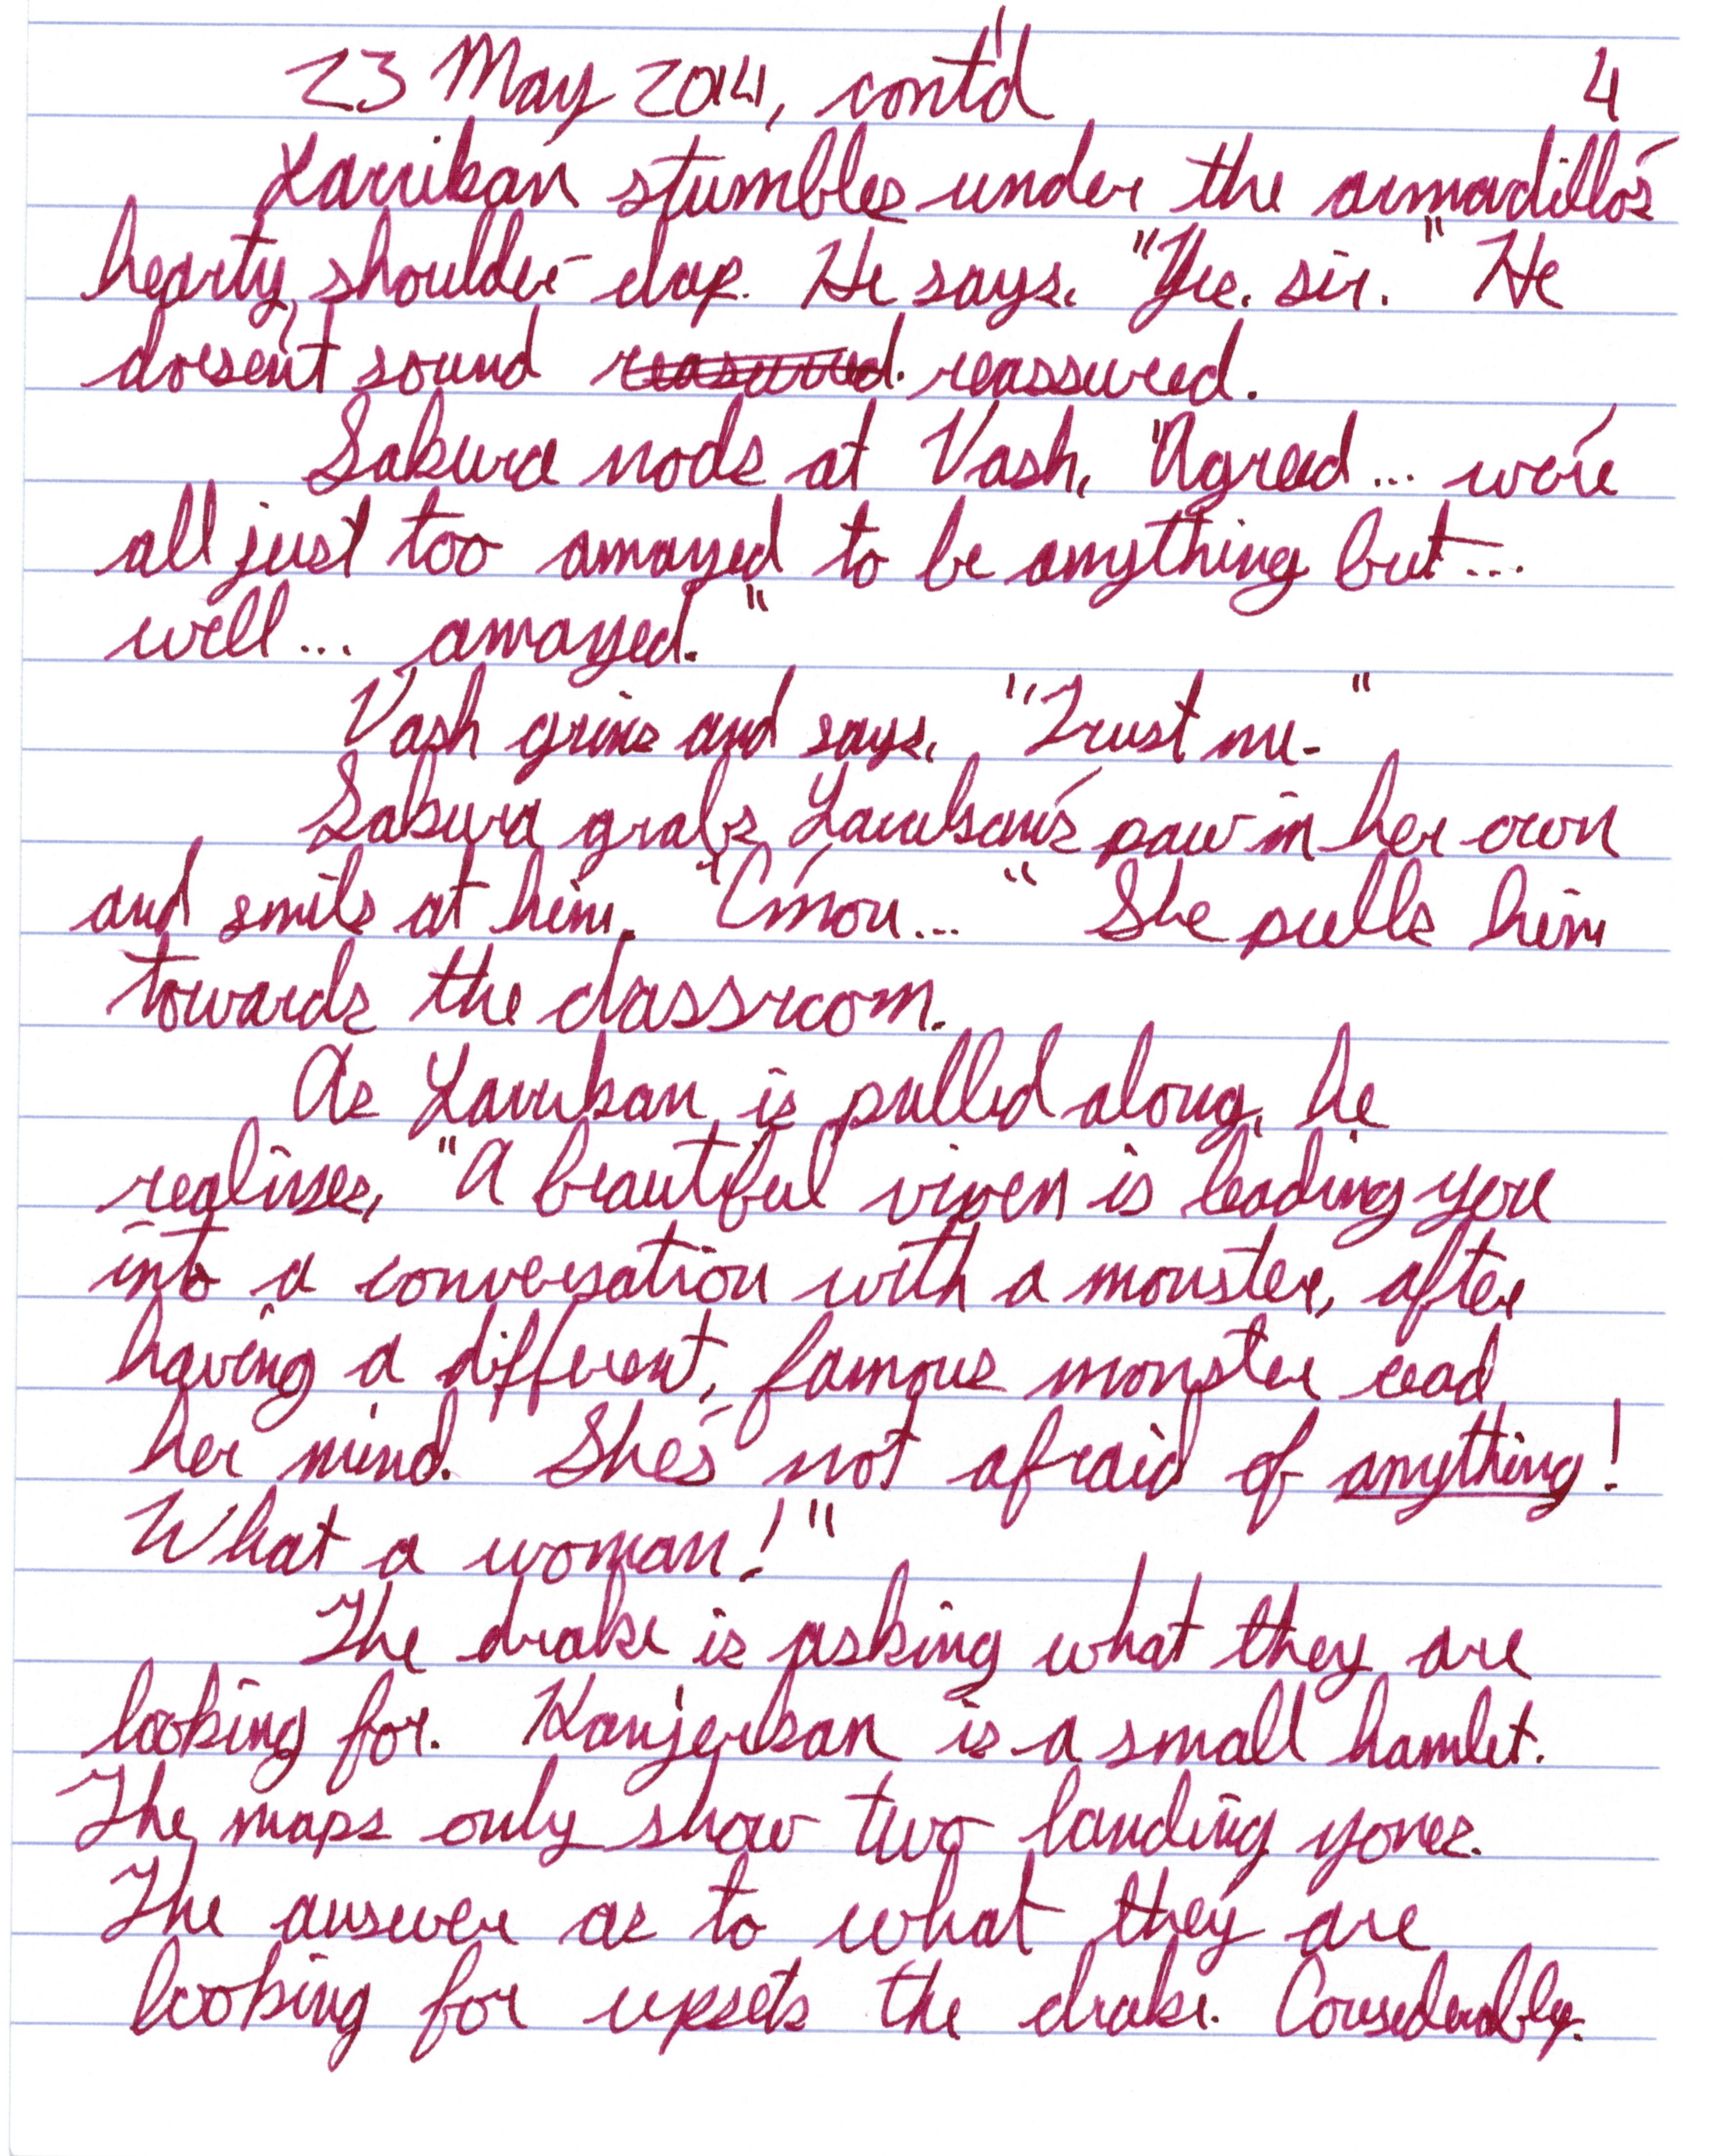 23 May 2014, cont'd 4
Larrikan stumbles under the armadillo's
hearty shoulder-clap. He says, "Yes, sir." He
doesn't sound reasurred. reassured.
Sakura nods at Vash, "Agreed... we're
all just too amazed to be anything but...
well... amazed."
Vash grins and says, "Trust me."
Sakura grabs Larrikan's paw in her own
and smiles at him. "C'mon..." She pulls him
towards the classroom.
As Larrikan is pulled along, he
realizes, "A beautiful vixen is leading you
into a conversation with a monster, after
having a different, famous monster read
her mind. She's not afraid of anything!
What a woman!"
The drake is asking what they are
looking for. Kanjerkan is a small hamlet.
The maps only show two landing zones.
The answer as to what they are
looking for upsets the drake. Considerably.